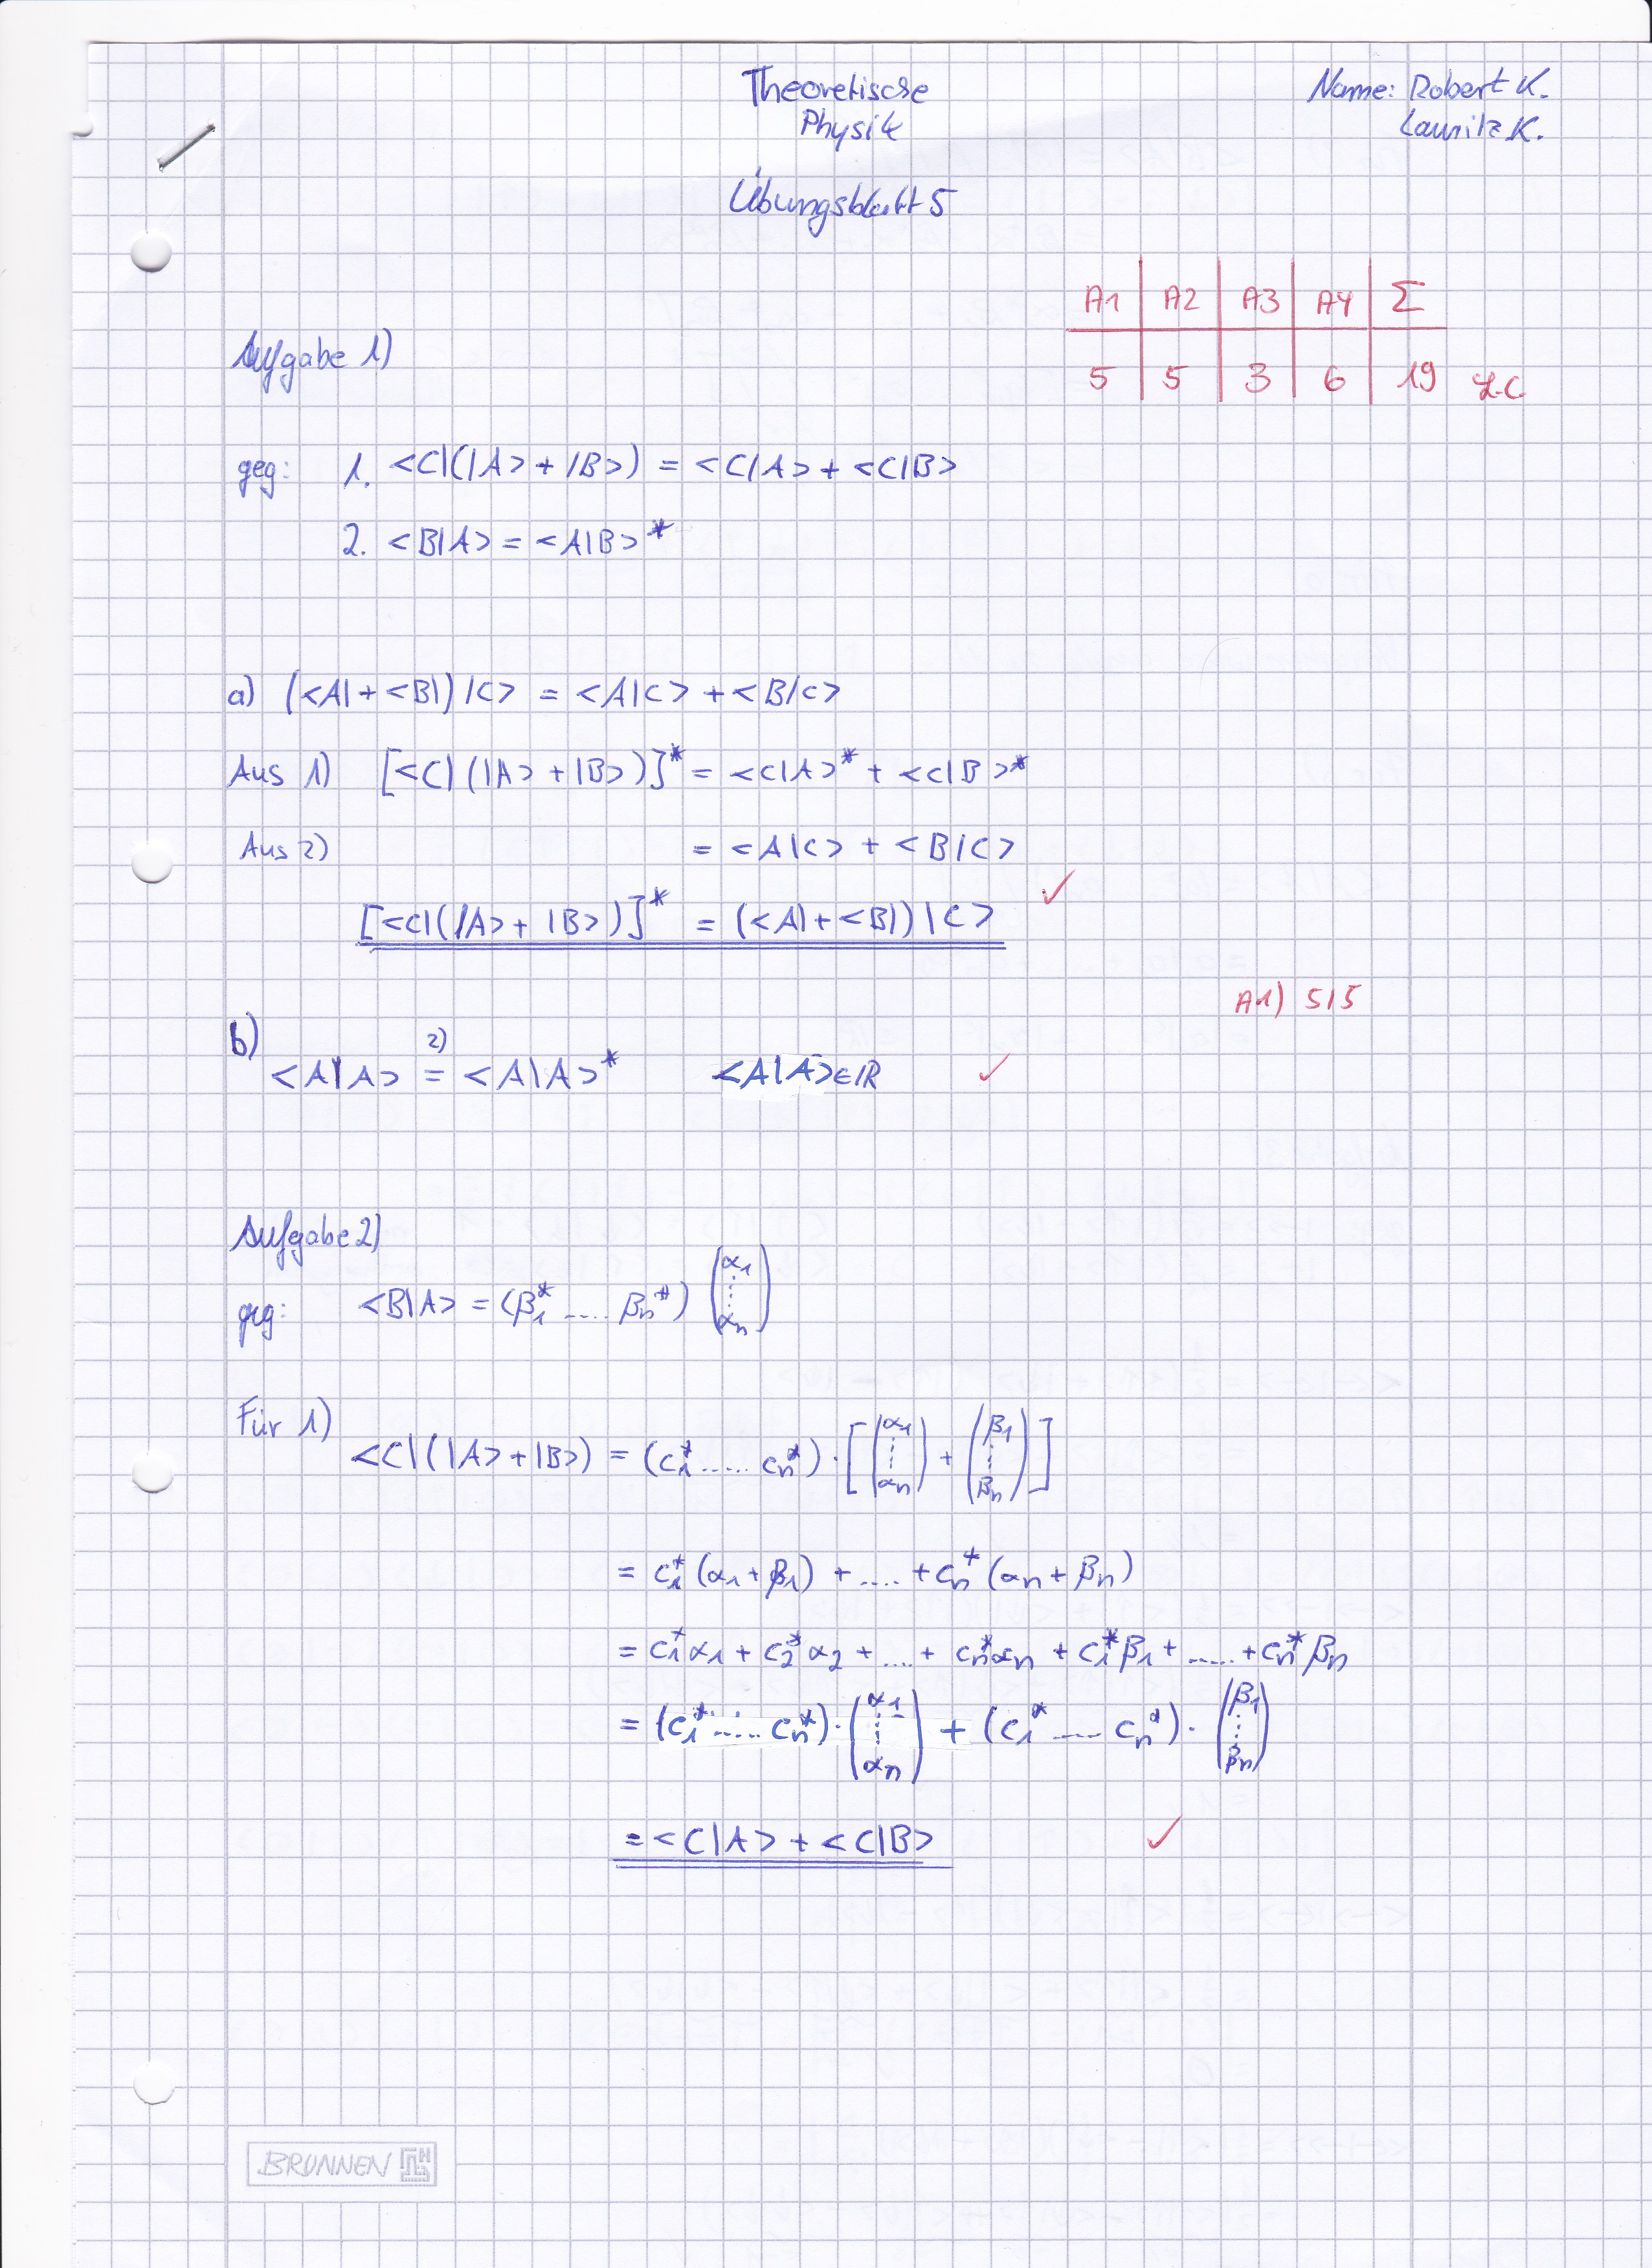 Theoretische
Physik
Name: Robert K.
Lauritz K.
Übungsblatt 5
A1 | A2 | A3 | A4 | Σ
5 | 5 | 3 | 6 | 19
Aufgabe 1)
geg: 1. <C|(|A> + |B>) = <C|A> + <C|B>
2. <B|A> = <A|B>*
a) (<A| + <B|) |C> = <A|C> + <B|C>
Aus 1) [<C| (|A> + |B>)]* = <C|A>* + <C|B>*
Aus 2) = <A|C> + <B|C>
[<C|(|A> + |B>)]* = (<A| + <B|) |C> ✓
A1) 5/5
b) <A|A> =²⁾ <A|A>* <A|A> ∈ ℝ ✓
Aufgabe 2)
geg: <B|A> = (β₁* .... βₙ*) (α₁ ⋮ αₙ)
Für 1) <C|(|A> + |B>) = (c₁* ..... cₙ*) · [(α₁ ⋮ αₙ) + (β₁ ⋮ βₙ)]
= c₁* (α₁ + β₁) + .... + cₙ* (αₙ + βₙ)
= c₁* α₁ + c₂* α₂ + ... + cₙ* αₙ + c₁* β₁ + ..... + cₙ* βₙ
= (c₁* ..... cₙ*) · (α₁ ⋮ αₙ) + (c₁* .... cₙ*) · (β₁ ⋮ βₙ)
= <C|A> + <C|B> ✓
BRUNNEN